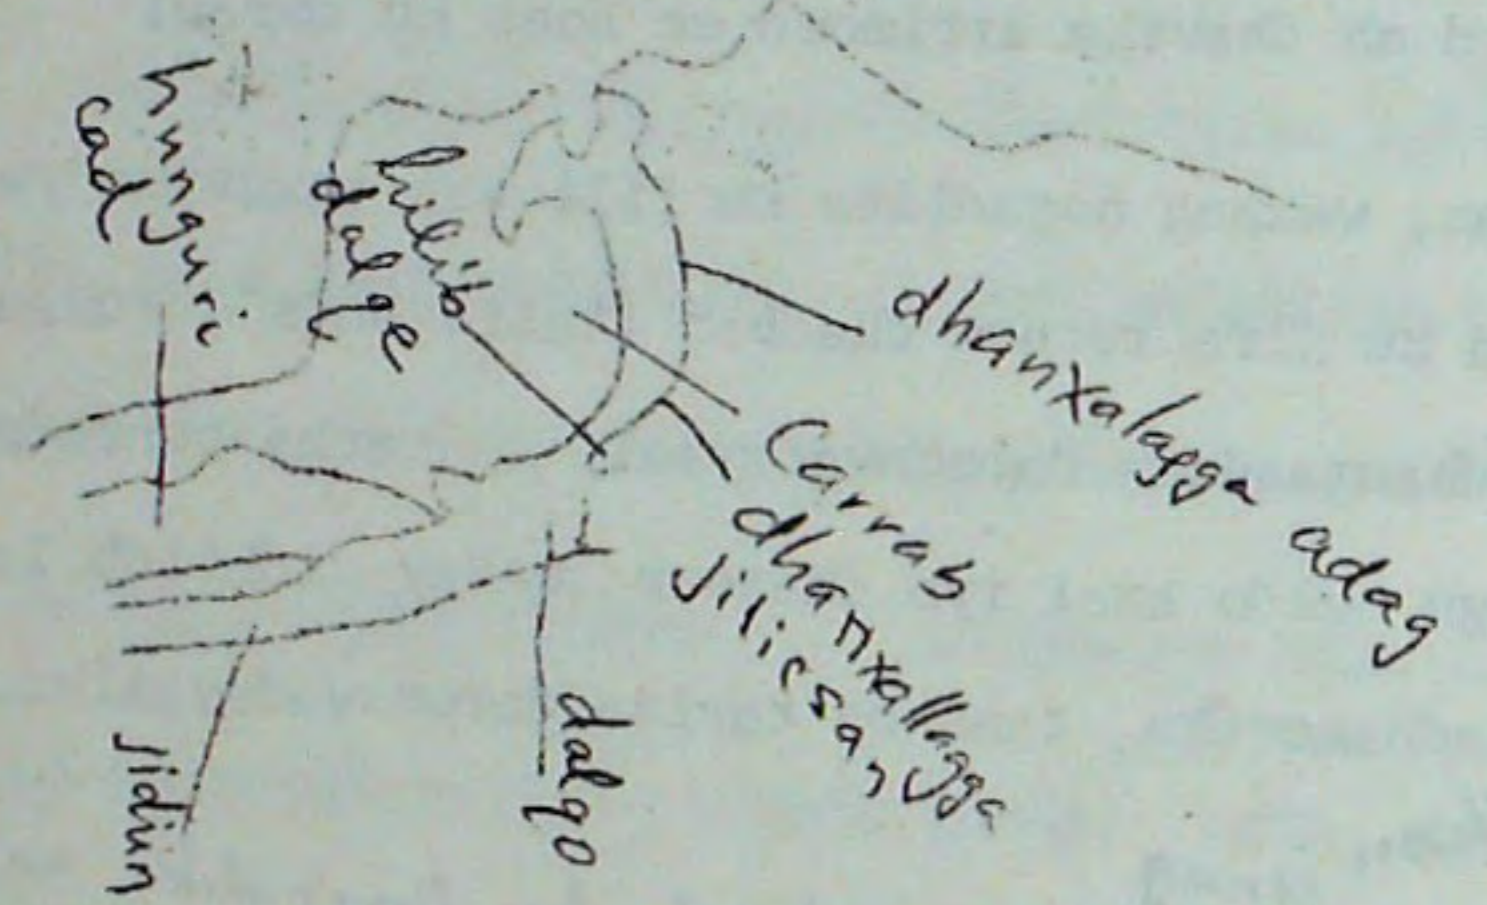 hunguri
cad
hilib
dalqe
dhanxalagga adag
Carrab
dhanxallagga
jilicsan
dalqo
jidiin